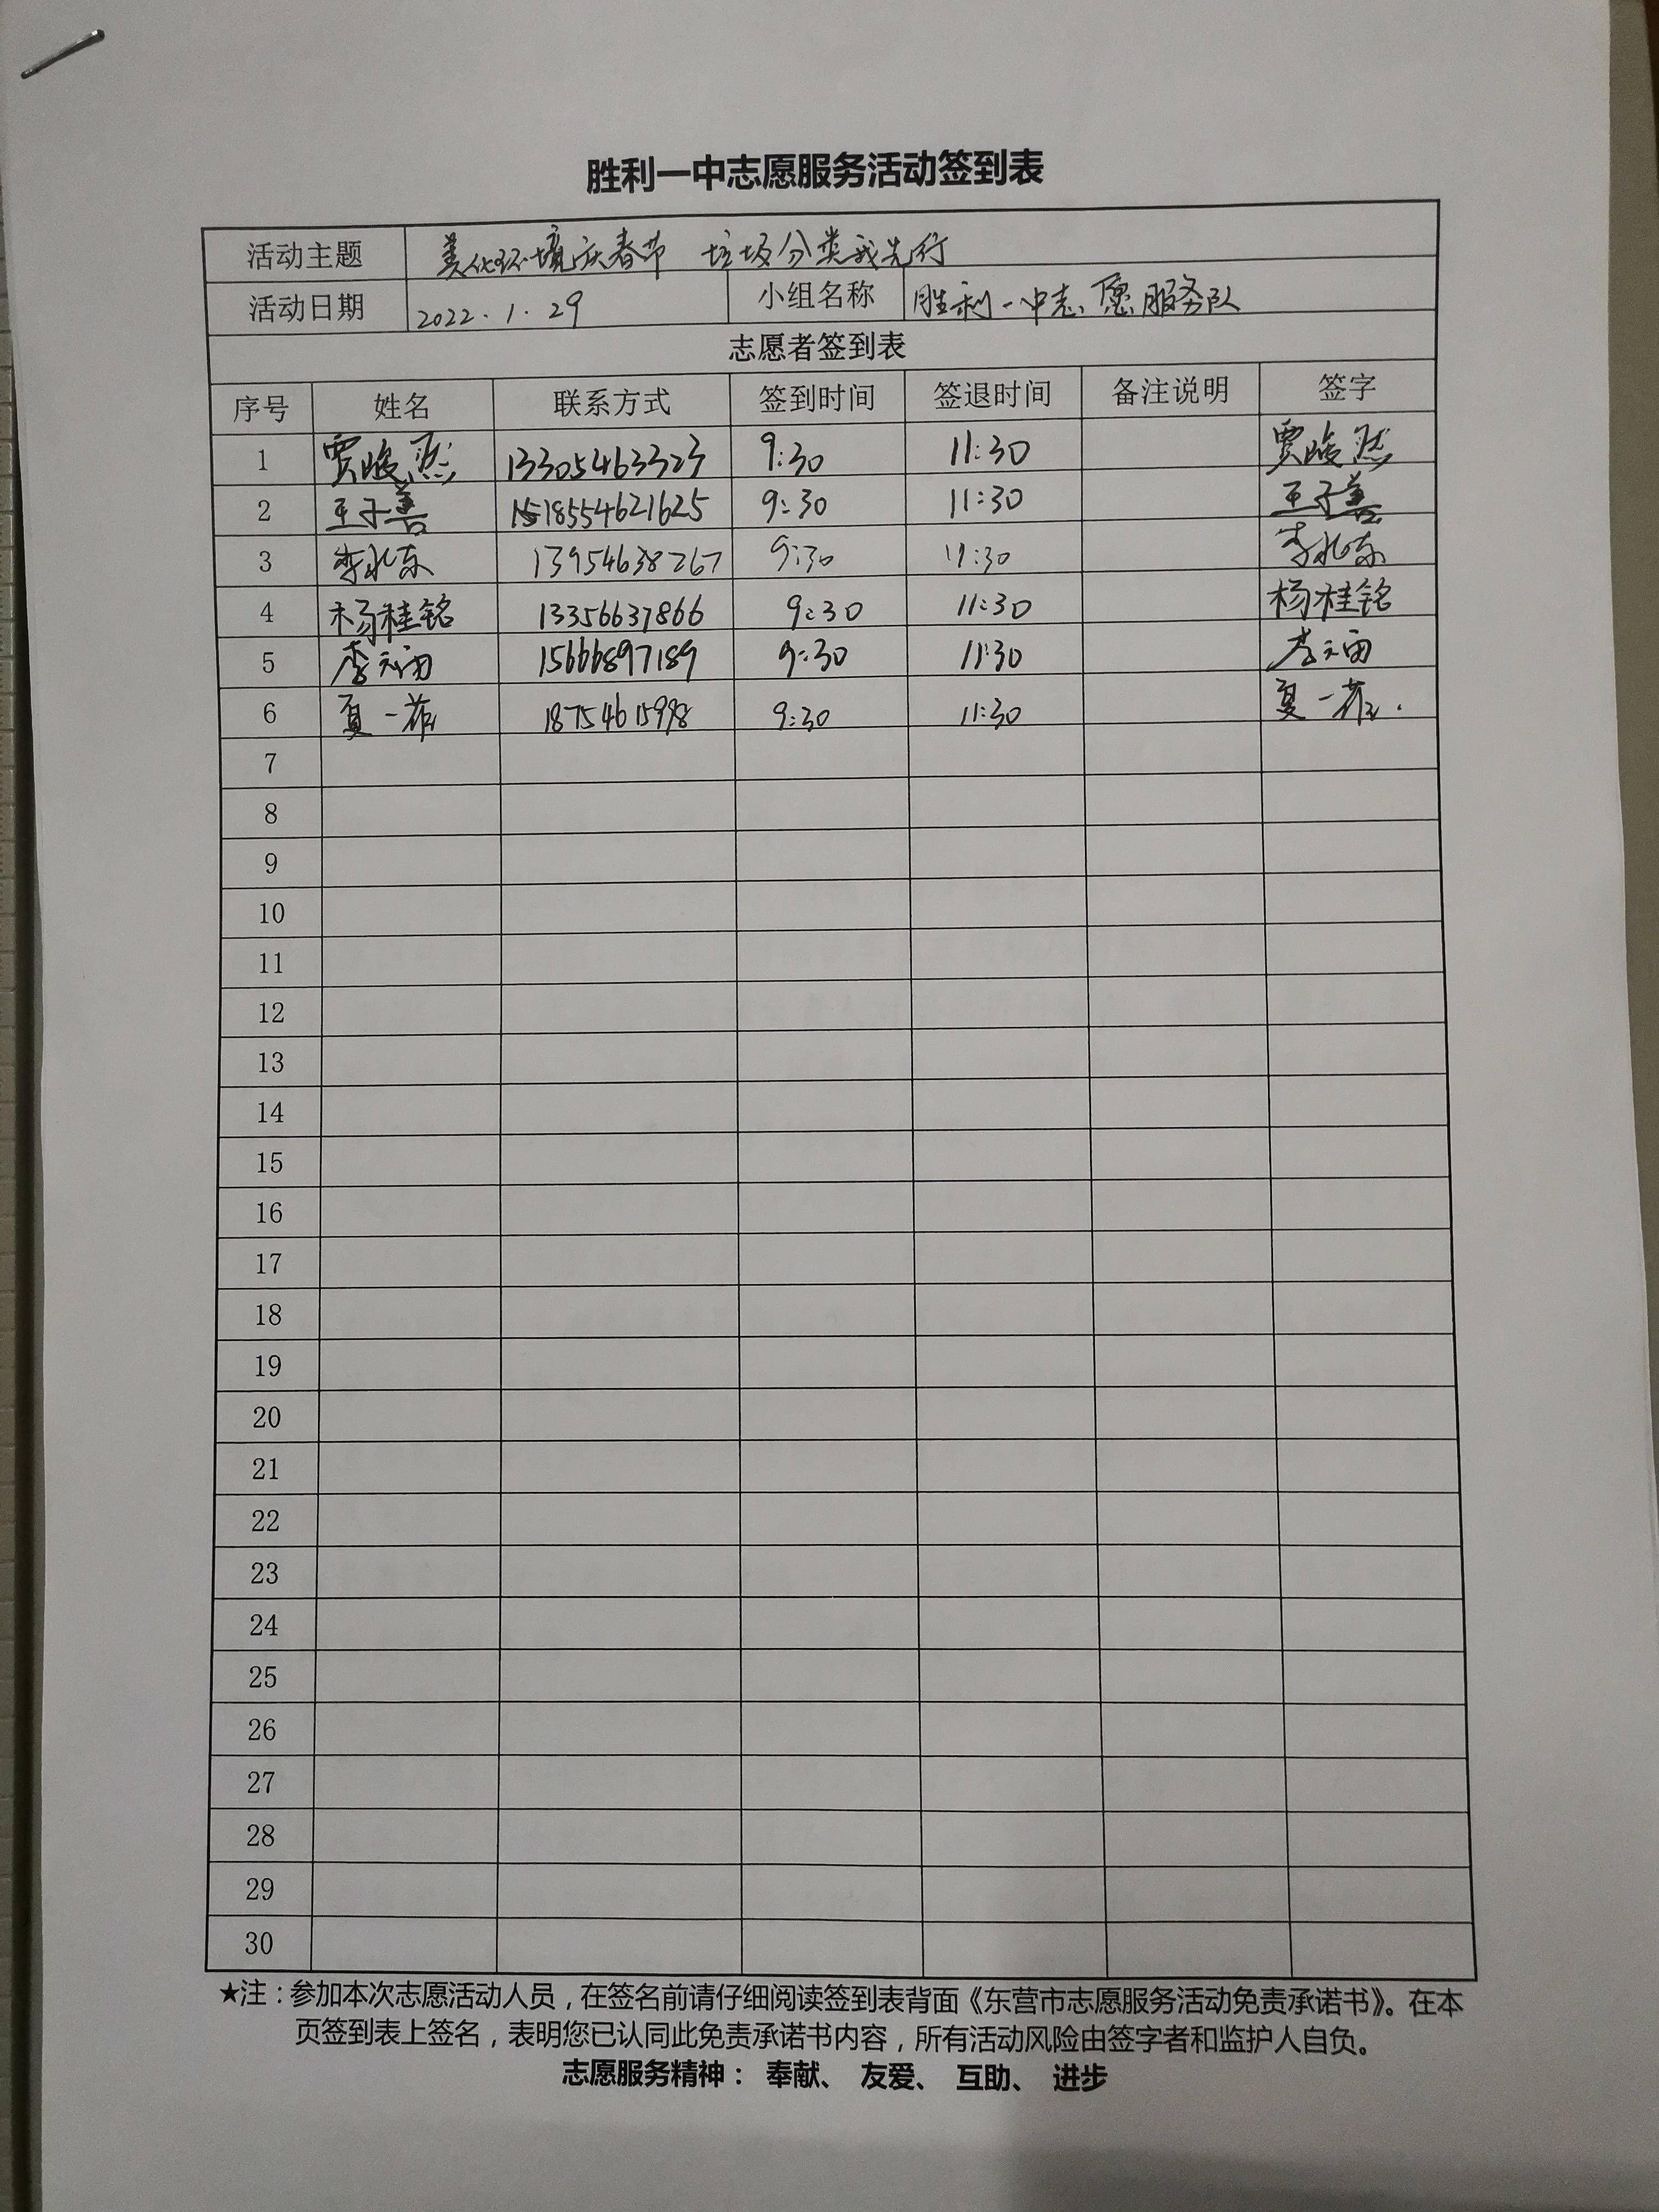 胜利一中志愿服务活动签到表
活动主题 美化环境庆春节 垃圾分类我先行
活动日期 2022.1.29 小组名称 胜利一中志愿服务队
志愿者签到表
序号 姓名 联系方式 签到时间 签退时间 备注说明 签字
1 贾峻然 13305463323 9:30 11:30 贾峻然
2 王子善 18554621625 9:30 11:30 王子善
3 李兆东 13954638267 9:30 11:30 李兆东
4 杨桂铭 13356637866 9:30 11:30 杨桂铭
5 李 15666897189 9:30 11:30 李
6 夏一菲 18754615998 9:30 11:30 夏一菲.
7
8
9
10
11
12
13
14
15
16
17
18
19
20
21
22
23
24
25
26
27
28
29
30
★注：参加本次志愿活动人员，在签名前请仔细阅读签到表背面《东营市志愿服务活动免责承诺书》。在本
页签到表上签名，表明您已认同此免责承诺书内容，所有活动风险由签字者和监护人自负。
志愿服务精神： 奉献、 友爱、 互助、 进步